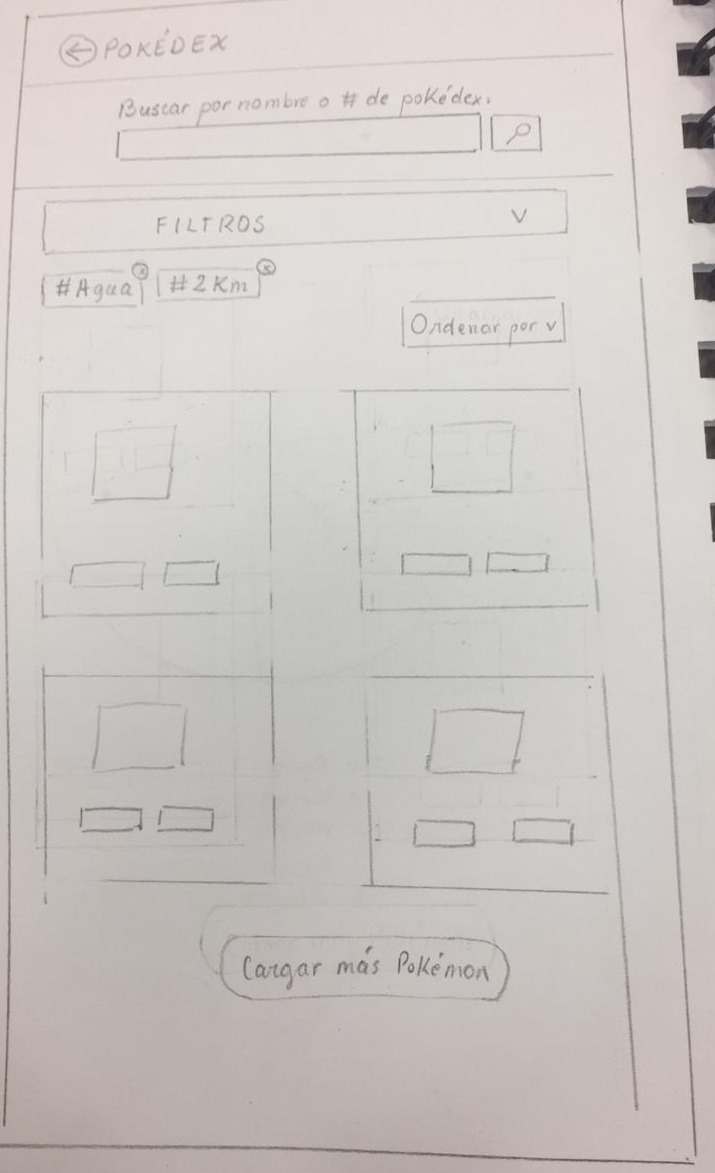 POKÉDEX
Buscar por nombre o # de pokédex.
FILTROS v
#Agua x #2 Km x
Ordenar por v
Cargar más Pokémon